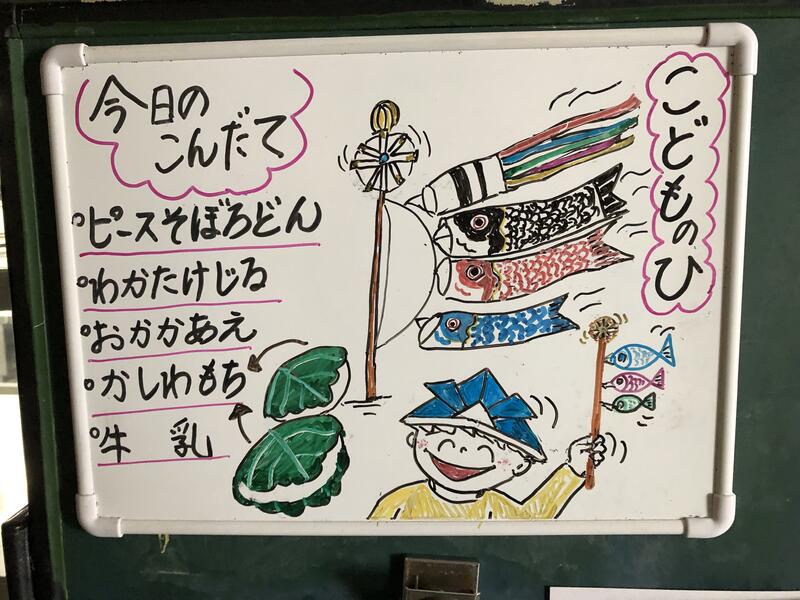 今日の
こんだて
ピースそぼろどん
わかたけじる
おかかあえ
かしわもち
牛 乳
こどものひ